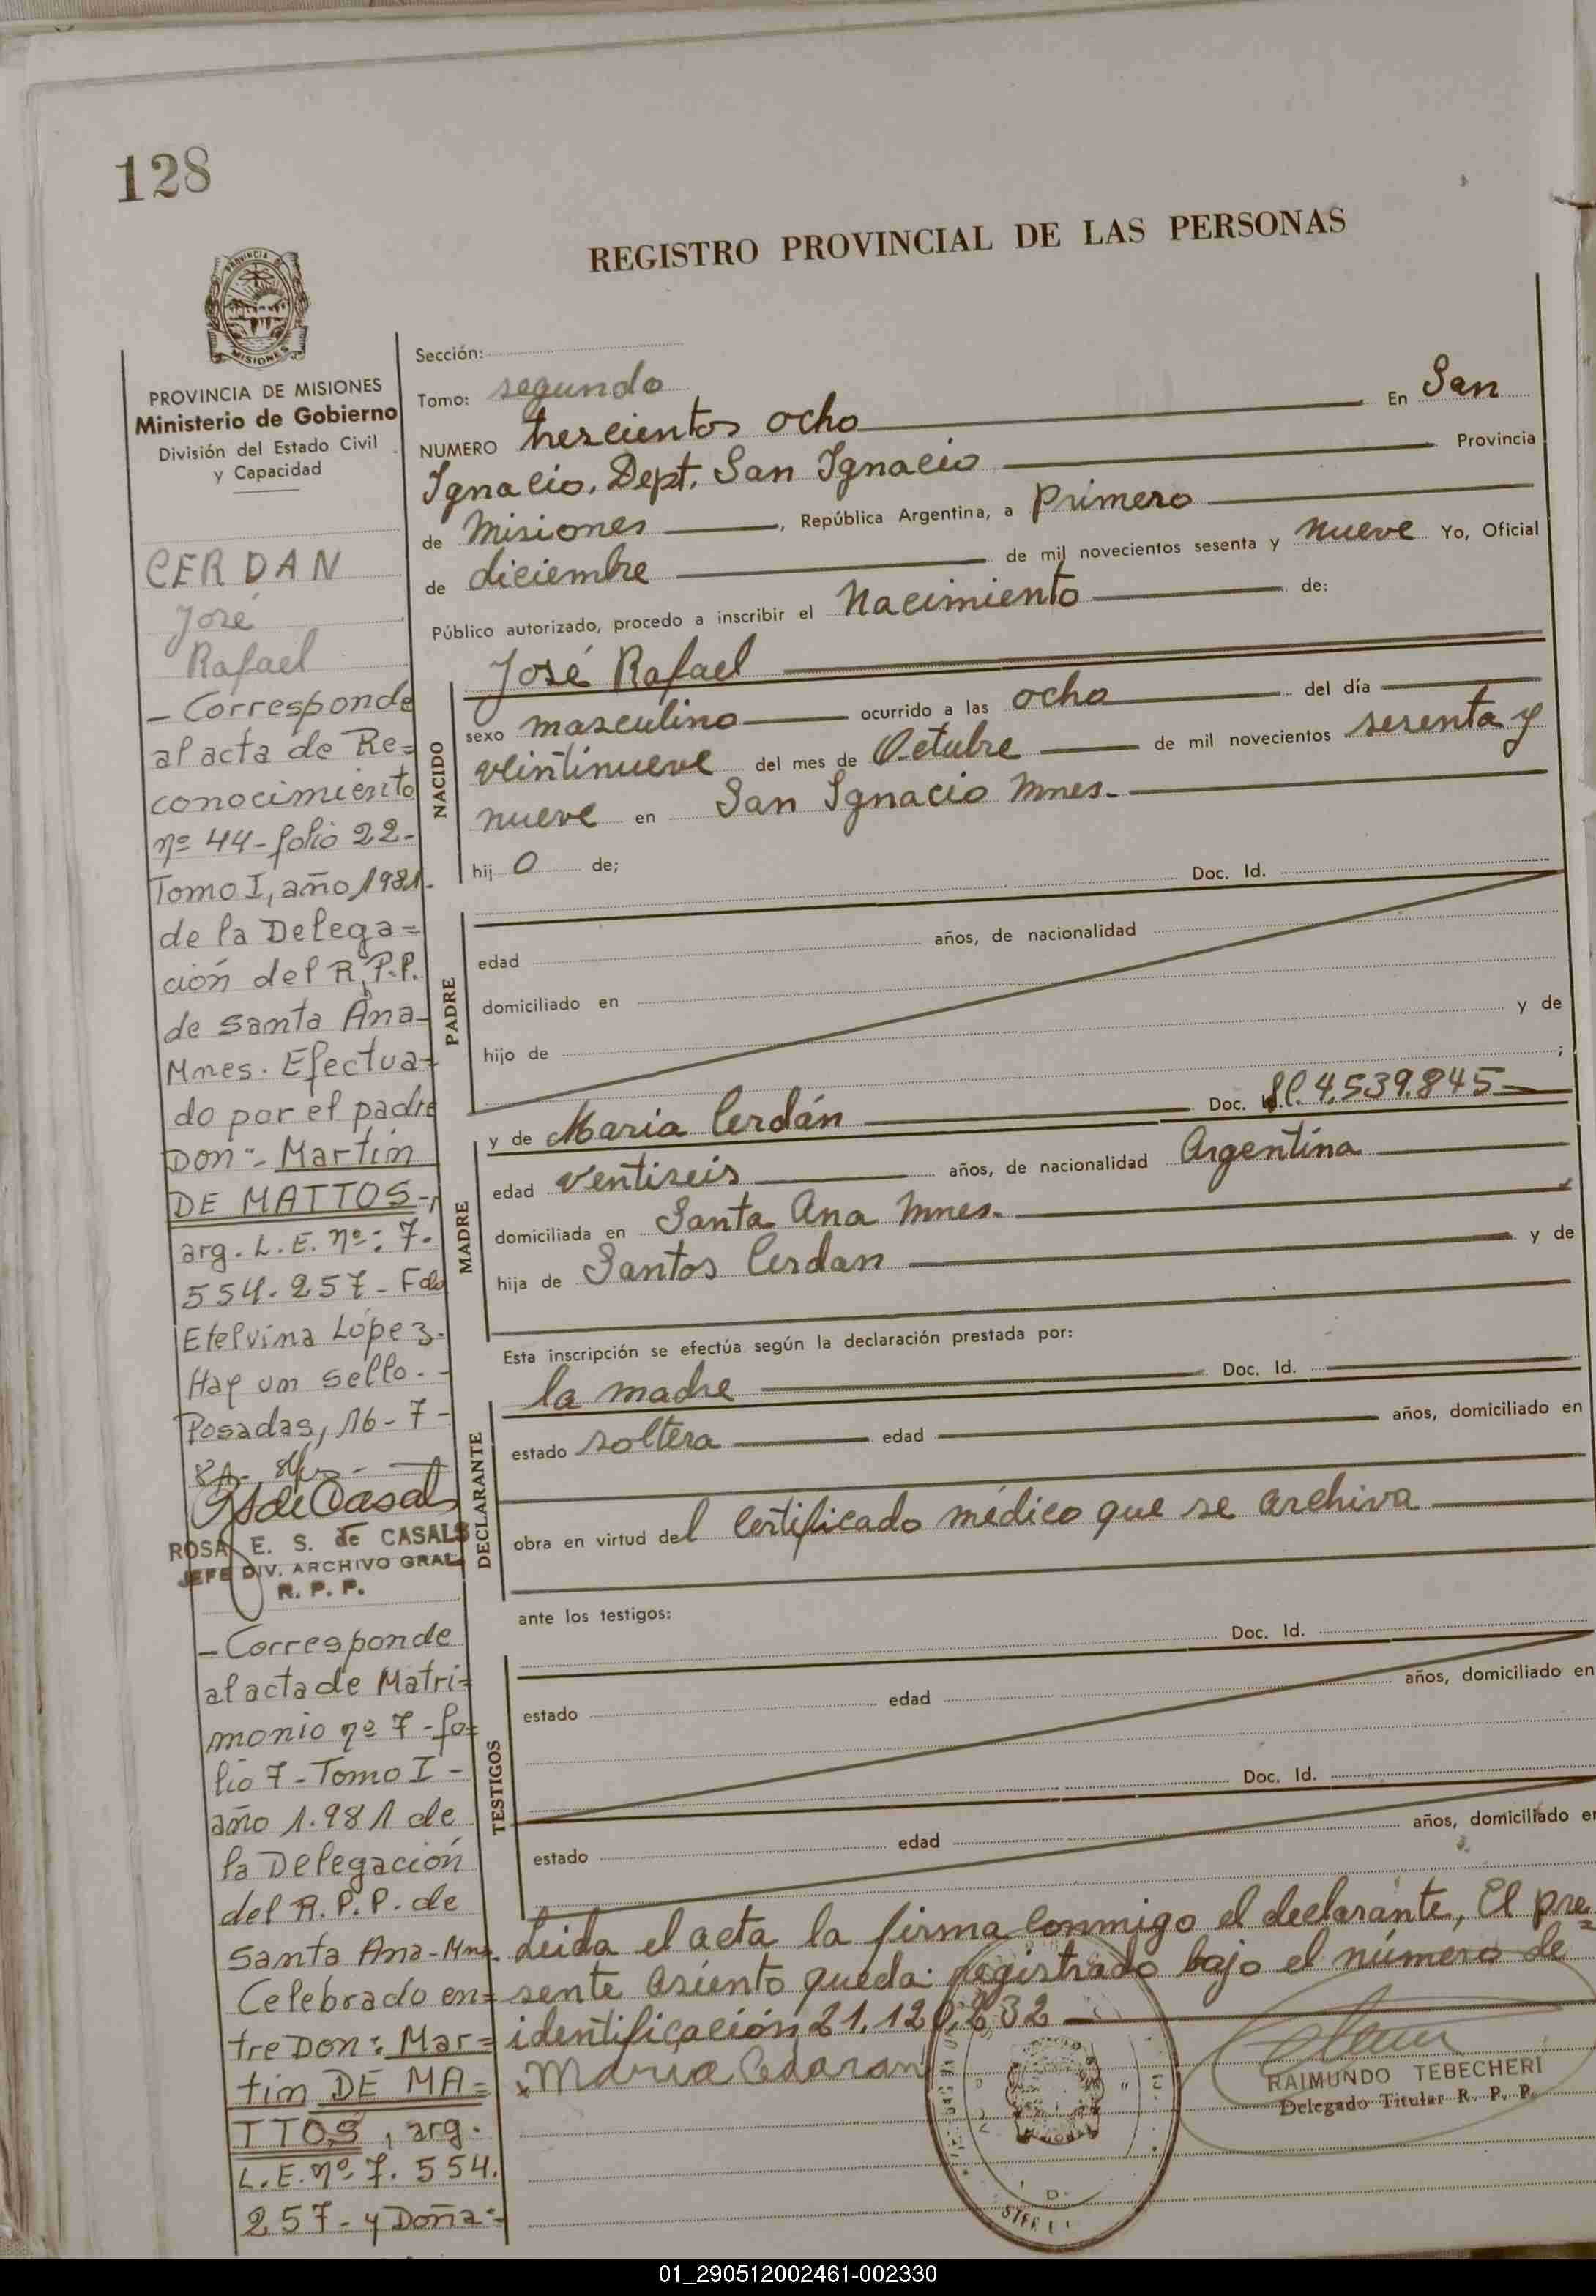 128
REGISTRO PROVINCIAL DE LAS PERSONAS
PROVINCIA DE MISIONES
Ministerio de Gobierno
División del Estado Civil
y Capacidad
CERDAN
José
Rafael
- Corresponde
al acta de Re=
conocimiento
nº 44 - folio 22-
Tomo I, año 1981-
de la Delega=
ción del R.P.P.
de Santa Ana-
Mnes. Efectua=
do por el padre
Don:- Martin
DE MATTOS-,
arg. L.E. nº: 7.
554.257- Fdo
Etelvina López.
Hay un sello.-
Posadas, 16-7-
ROSA E. S. de CASALS
JEFE DIV. ARCHIVO GRAL.
R. P. P.
- Corresponde
al acta de Matri=
monio nº 7 - fo=
lio 7 - Tomo I -
año 1.981 de
la Delegación
del R.P.P. de
Santa Ana-Mns.
Celebrado en=
tre Don: Mar=
tin DE MA=
TTOS, arg.
L.E. nº 7.554.
257- y Doña:-
Sección:
Tomo: segundo
NUMERO trescientos ocho En San
Ignacio, Dept. San Ignacio Provincia
de Misiones, República Argentina, a primero
de diciembre de mil novecientos sesenta y nueve Yo, Oficial
Público autorizado, procedo a inscribir el Nacimiento de:
NACIDO
José Rafael
sexo masculino ocurrido a las ocho del día
veintinueve del mes de Octubre de mil novecientos sesenta y
nueve en San Ignacio Mnes.
hijo de;
PADRE
Doc. Id.
edad años, de nacionalidad
domiciliado en
hijo de y de
;
MADRE
y de Maria Cerdán Doc. 4.539.845
edad ventiseis años, de nacionalidad Argentina
domiciliada en Santa Ana Mnes.
hija de Santos Cerdan y de
Esta inscripción se efectúa según la declaración prestada por:
DECLARANTE
la madre Doc. Id.
estado soltera edad años, domiciliado en
obra en virtud del Certificado médico que se archiva
ante los testigos:
TESTIGOS
Doc. Id.
estado edad años, domiciliado en
Doc. Id.
estado edad años, domiciliado en
Leida el acta la firma conmigo el declarante, El pre=
sente asiento queda registrado bajo el número de
identificación 21.120.232
Maria Cedaran
RAIMUNDO TEBECHERI
Delegado Titular R. P. P.
01_290512002461-002330